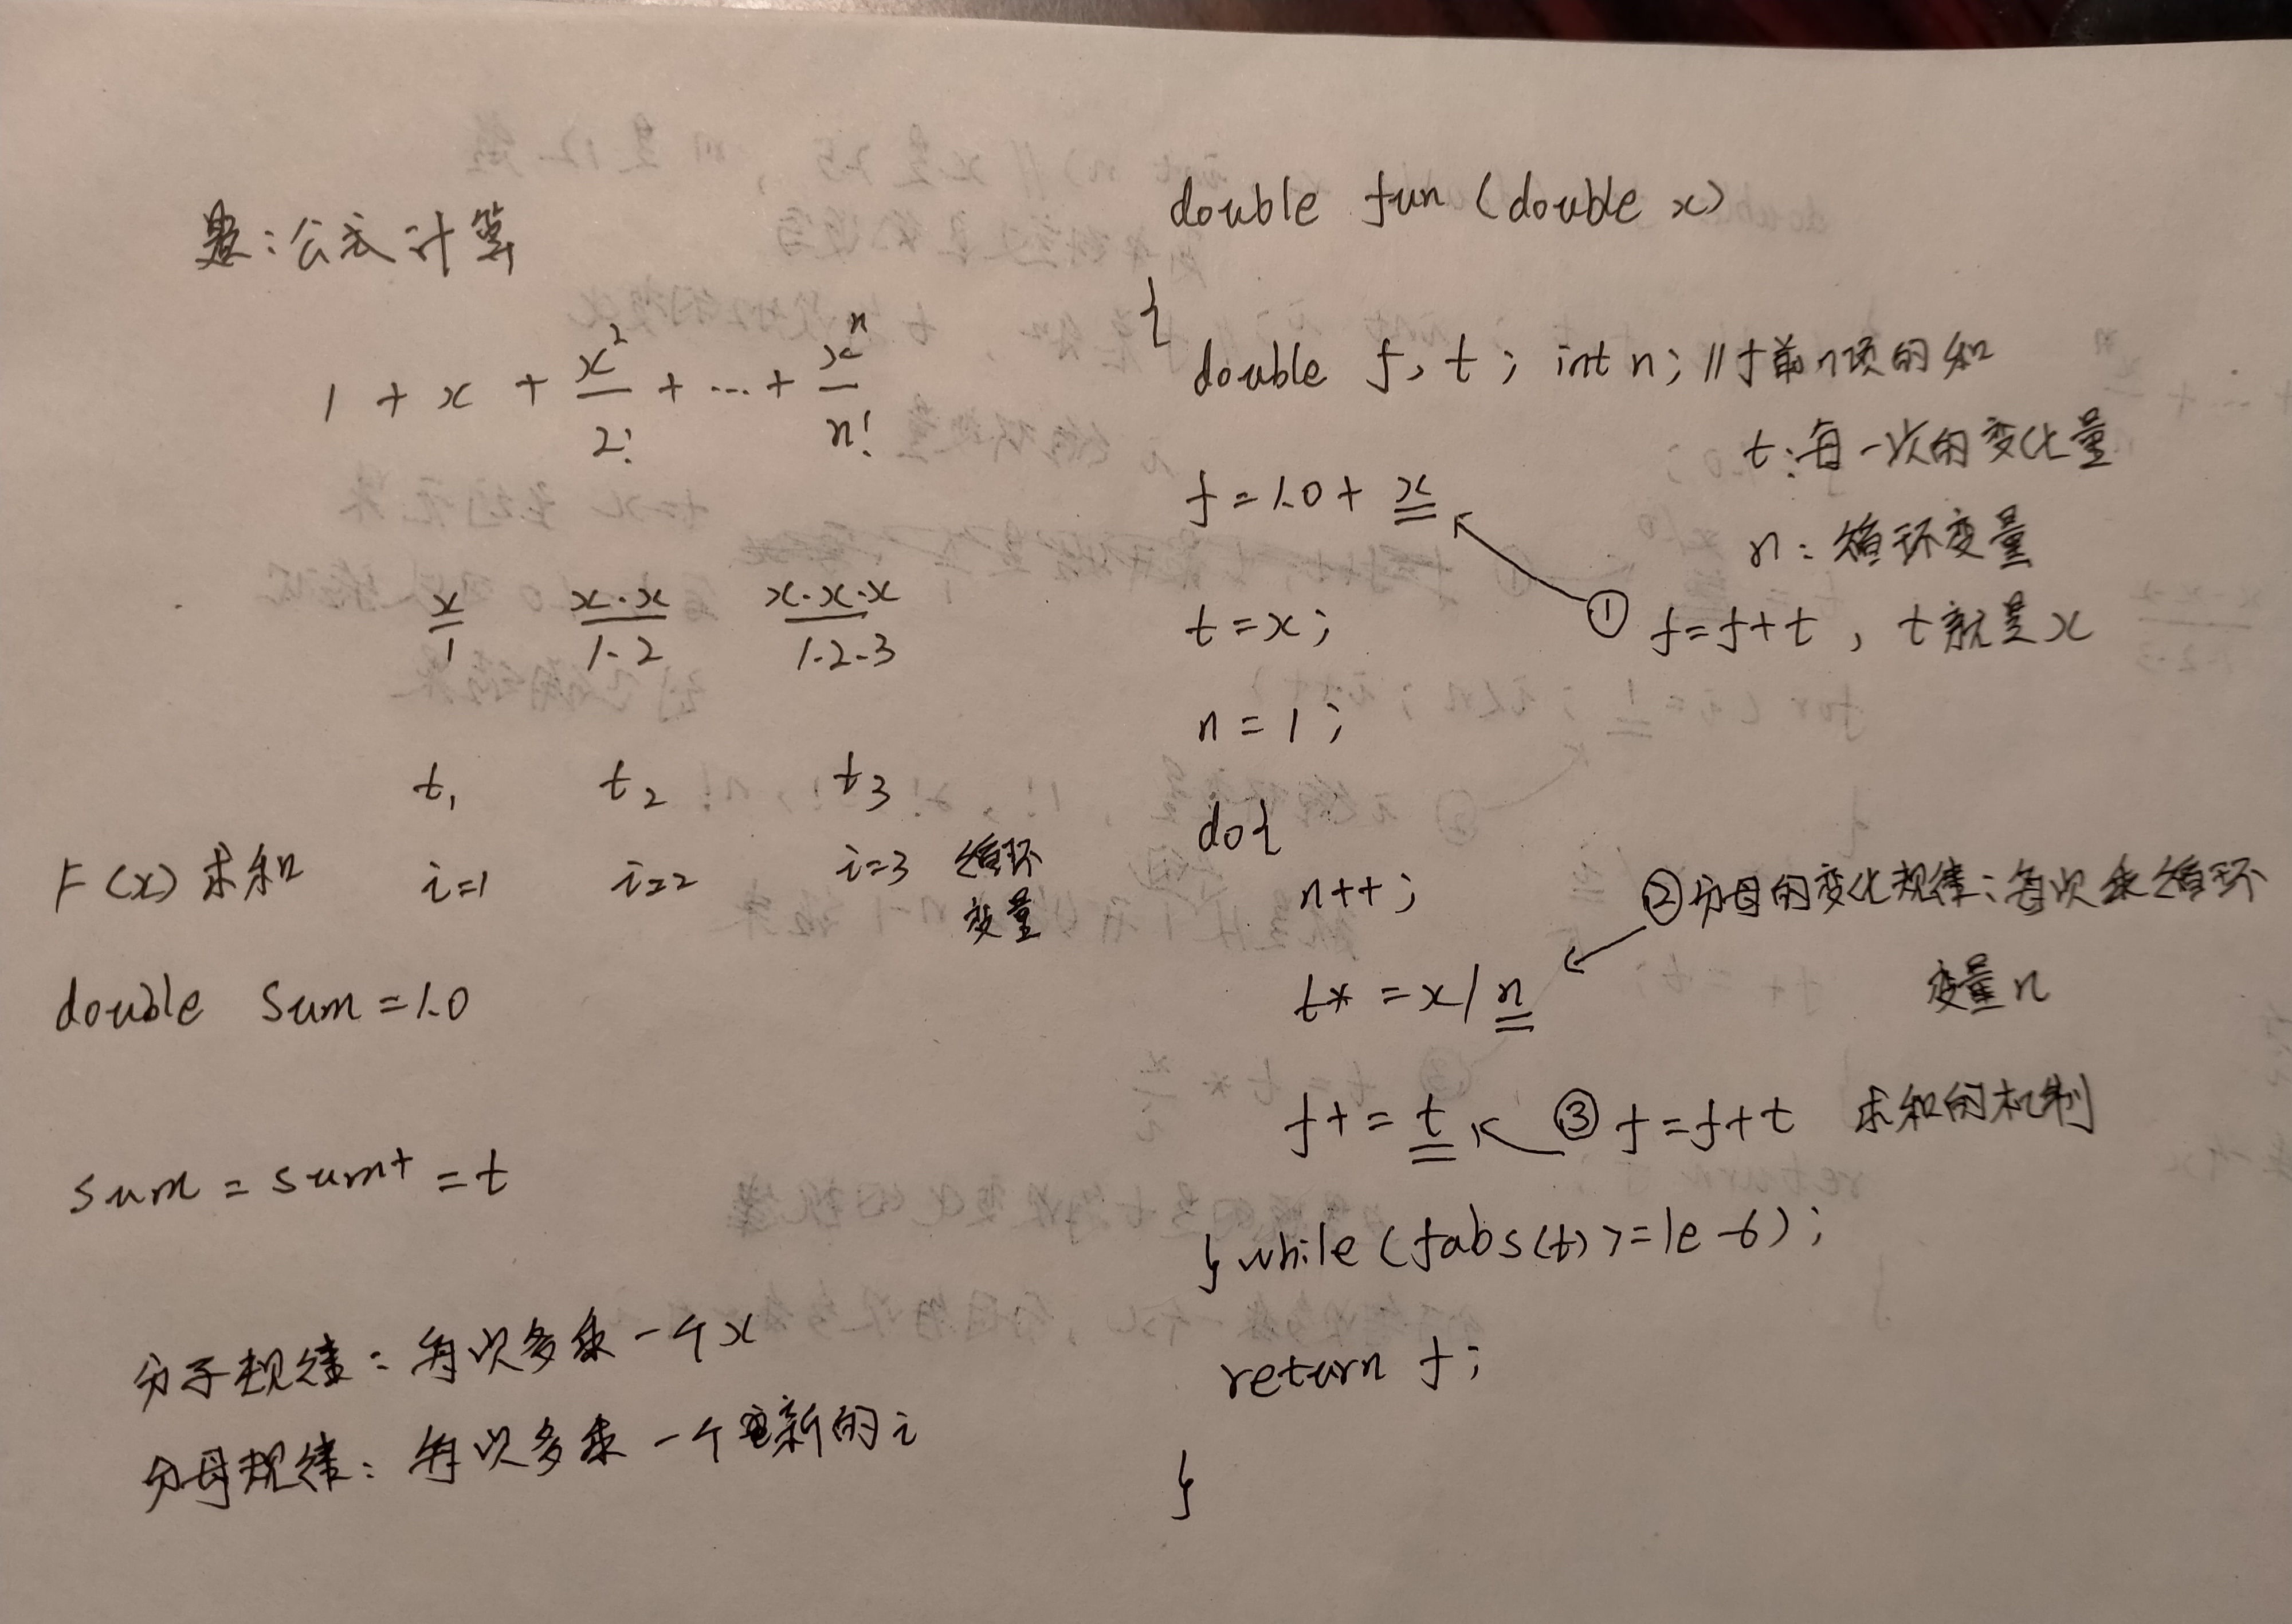 题:公式计算
1 + x + x²/2! + ... + xⁿ/n!
x/1 x·x/1·2 x·x·x/1·2·3
t₁ t₂ t₃
F(x)求和 i=1 i=2 i=3 循环
变量
double sum=1.0
sum = sum+ =t
分子规律:每次多乘一个x
分母规律:每次多乘一个新的i
double fun(double x)
{
double f, t; int n; //f前n项的和
t:每一次的变化量
n:循环变量
f=1.0+x
t=x; ① f=f+t, t就是x
n=1;
do{
n++; ②分母的变化规律:每次乘循环
变量n
t* =x/n
f+=t ③ f=f+t 求和的机制
}while(fabs(t)>=1e-6);
return f;
}